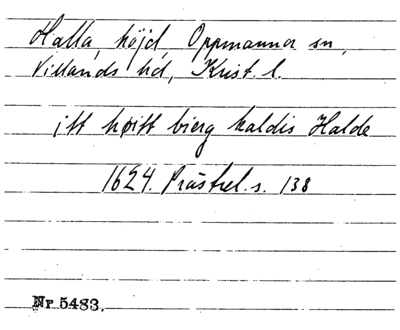 Halla, höjd, Oppmanna sn,
Villands hd, Krist. l.
itt høitt bierg kaldis Halde
1624. Prästrel. s. 138
Nr 5483.